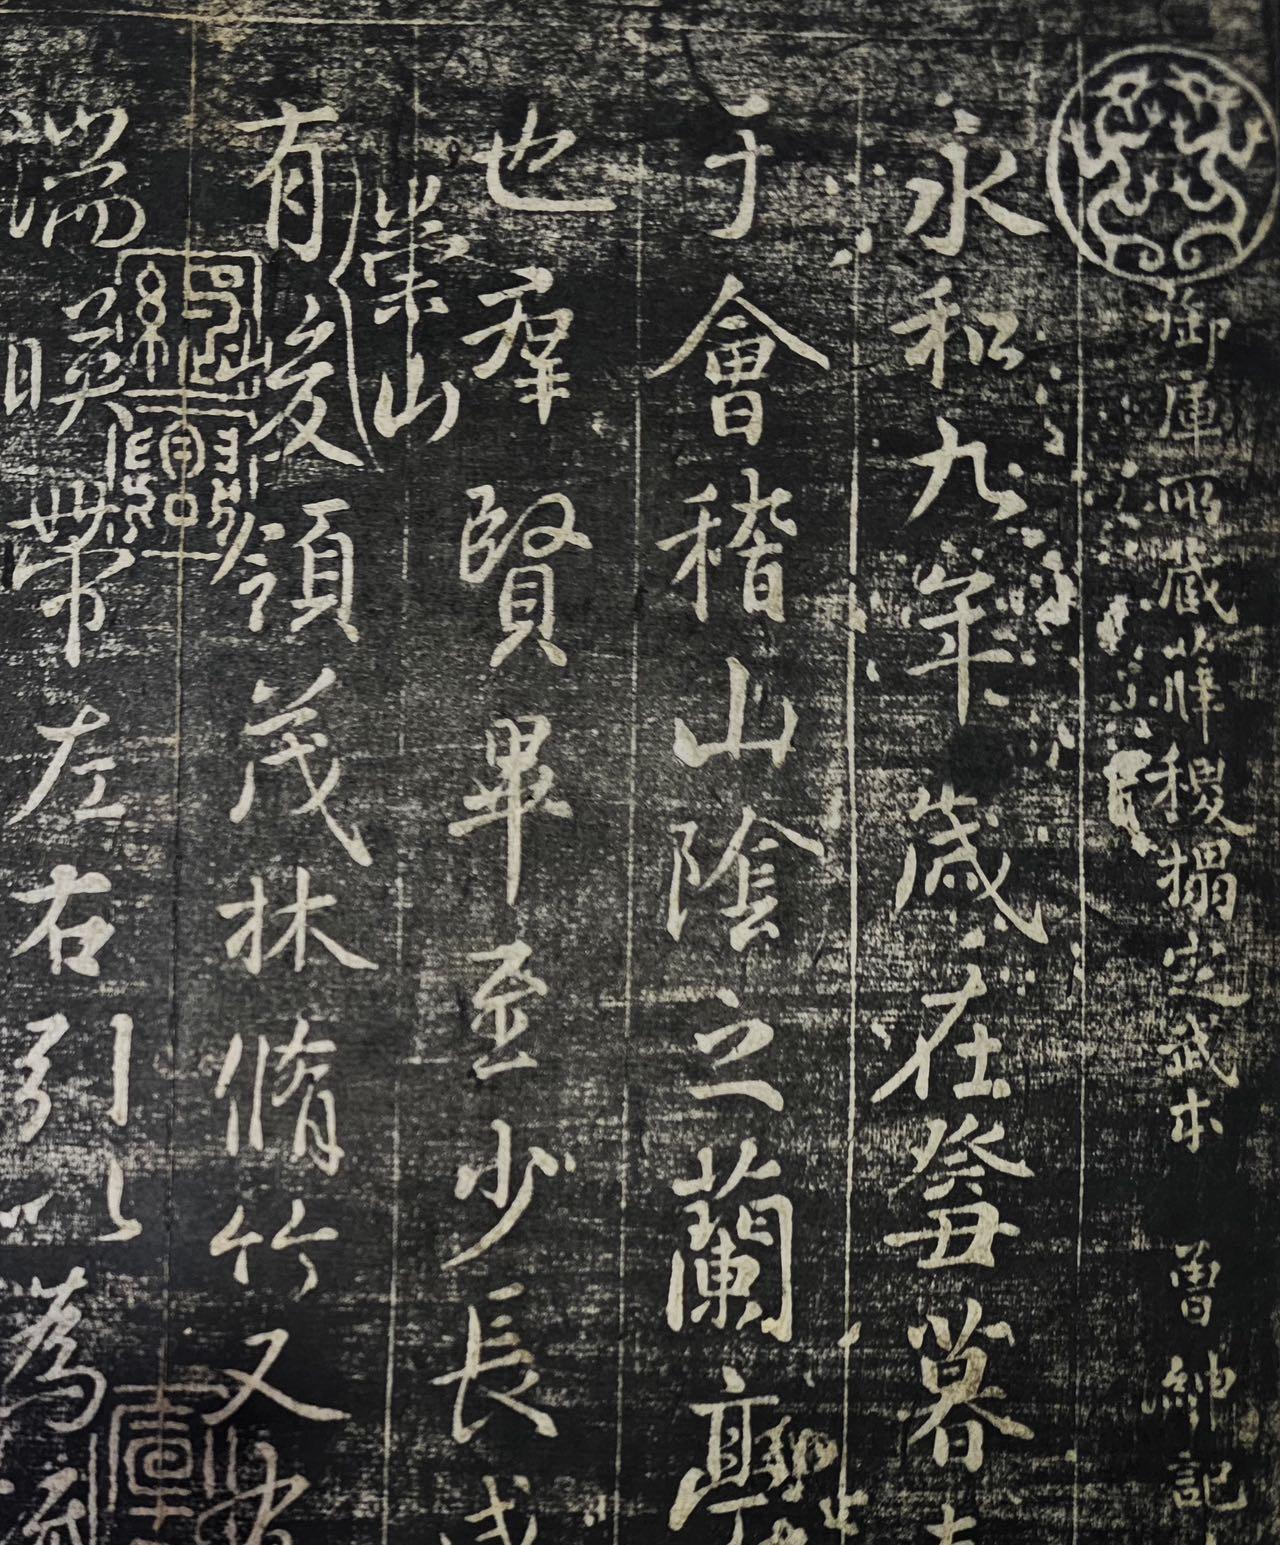 御庫所藏薛稷搨定武本 曾紳記
永和九年歲在癸丑暮
于會稽山陰之蘭亭
也羣賢畢至少長咸
崇山
有峻領茂林脩竹又
湍暎帶左右引以為流